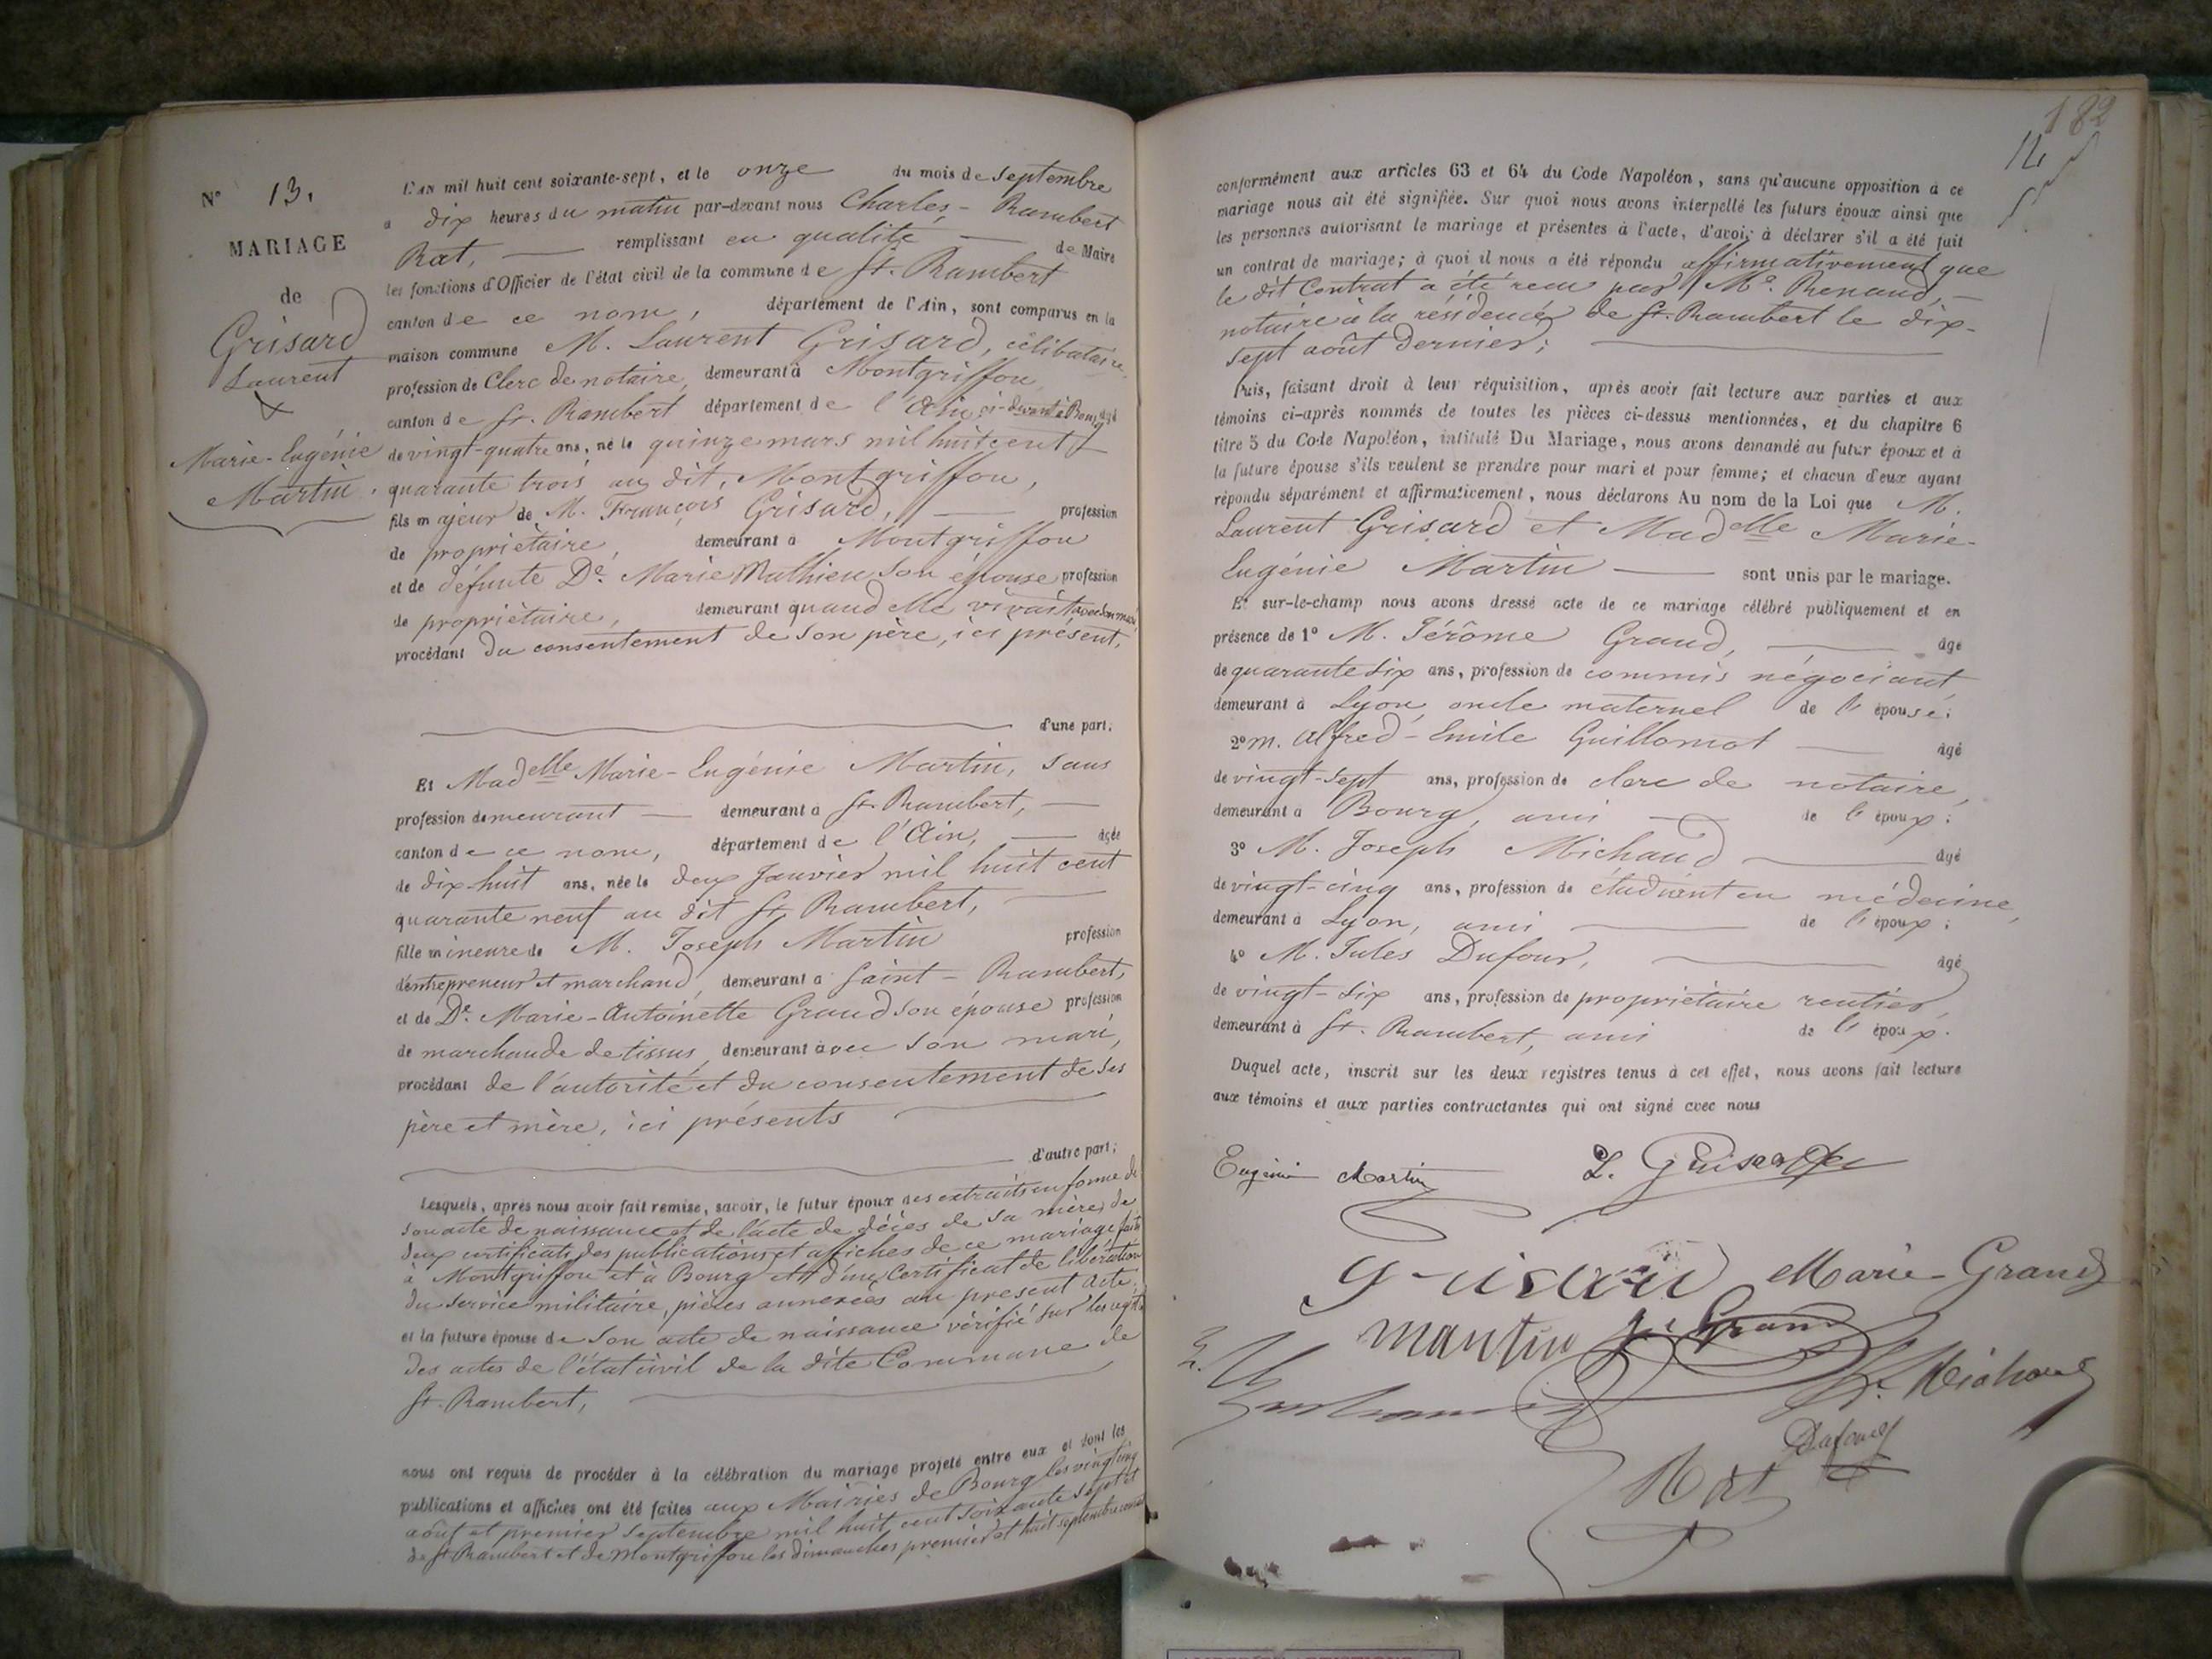 N° 13.
MARIAGE
de
Grisard
Laurent
&
Marie-Eugénie
Martin.
L'an mil huit cent soixante-sept, et le onze du mois de septembre
à dix heures du matin par-devant nous Charles-Rambert
Rat, remplissant en qualité de Maire
les fonctions d'Officier de l'état civil de la commune de St. Rambert
canton de ce nom, département de l'Ain, sont comparus en la
maison commune M. Laurent Grisard, célibataire,
profession de Clerc de notaire, demeurant à Montgriffon,
canton de St. Rambert département de l'Ain, ci-devant à Bourg, âgé
de vingt-quatre ans, né le quinze mars mil huit cent
quarante trois au dit, Montgriffon,
fils majeur de M. François Grisard, profession
de propriétaire, demeurant à Montgriffon
et de défunte De. Marie Mathieu son épouse profession
de propriétaire, demeurant quand elle vivait avec son mari,
procédant du consentement de son père, ici présent,
d'une part;
Et Madelle Marie-Eugénie Martin, sans
profession demeurant demeurant à St. Rambert,
canton de ce nom, département de l'Ain, âgée
de dix-huit ans, née le deux Janvier mil huit cent
quarante neuf au dit St. Rambert,
fille mineure de M. Joseph Martin profession
d'entrepreneur et marchand, demeurant à Saint-Rambert,
et de De. Marie-Antoinette Grand son épouse profession
de marchande de tissus, demeurant avec son mari,
procédant de l'autorité et du consentement de ses
père et mère, ici présents
d'autre part;
Lesquels, après nous avoir fait remise, savoir, le futur époux des extraits en forme de
son acte de naissance et de l'acte de décès de sa mère, de
deux certificats des publications et affiches de ce mariage faites
à Montgriffon et à Bourg et d'un Certificat de libération
du service militaire, pièces annexées au présent acte;
et la future épouse de son acte de naissance vérifié sur les registres
des actes de l'état civil de la dite Commune de
St. Rambert,
nous ont requis de procéder à la célébration du mariage projeté entre eux et dont les
publications et affiches ont été faites aux Mairies de Bourg les vingt cinq
août et premier septembre mil huit cent soixante sept et
de St. Rambert et de Montgriffon les dimanches premier et huit septembre courant
182
conformément aux articles 63 et 64 du Code Napoléon, sans qu'aucune opposition à ce
mariage nous ait été signifiée. Sur quoi nous avons interpellé les futurs époux ainsi que
les personnes autorisant le mariage et présentes à l'acte, d'avoir à déclarer s'il a été fait
un contrat de mariage; à quoi il nous a été répondu affirmativement que
le dit Contrat a été recu par Me. Renaud,
notaire à la résidence de St. Rambert le dix-
sept août dernier;
Puis, faisant droit à leur réquisition, après avoir fait lecture aux parties et aux
témoins ci-après nommés de toutes les pièces ci-dessus mentionnées, et du chapitre 6
titre 5 du Code Napoléon, intitulé Du Mariage, nous avons demandé au futur époux et à
la future épouse s'ils veulent se prendre pour mari et pour femme; et chacun d'eux ayant
répondu séparément et affirmativement, nous déclarons Au nom de la Loi que M.
Laurent Grisard et Madelle Marie-
Eugénie Martin sont unis par le mariage.
Et sur-le-champ nous avons dressé acte de ce mariage célébré publiquement et en
présence de 1° M. Jérôme Grand, âgé
de quarante six ans, profession de commis négociant
demeurant à Lyon, oncle maternel de l'épouse;
2° M. Alfred-Emile Guillomot âgé
de vingt-sept ans, profession de clerc de notaire,
demeurant à Bourg, ami de l'époux;
3° M. Joseph Michaud âgé
de vingt-cinq ans, profession de étudiant en médecine,
demeurant à Lyon, ami de l'époux;
4° M. Jules Dufour, âgé
de vingt-six ans, profession de propriétaire rentier,
demeurant à St. Rambert, ami de l'époux.
Duquel acte, inscrit sur les deux registres tenus à cet effet, nous avons fait lecture
aux témoins et aux parties contractantes qui ont signé avec nous
Eugénie Martin L. Grisard
Grisard Marie Grand
Martin J. Grand
J. Michaud
Dufour
Rat